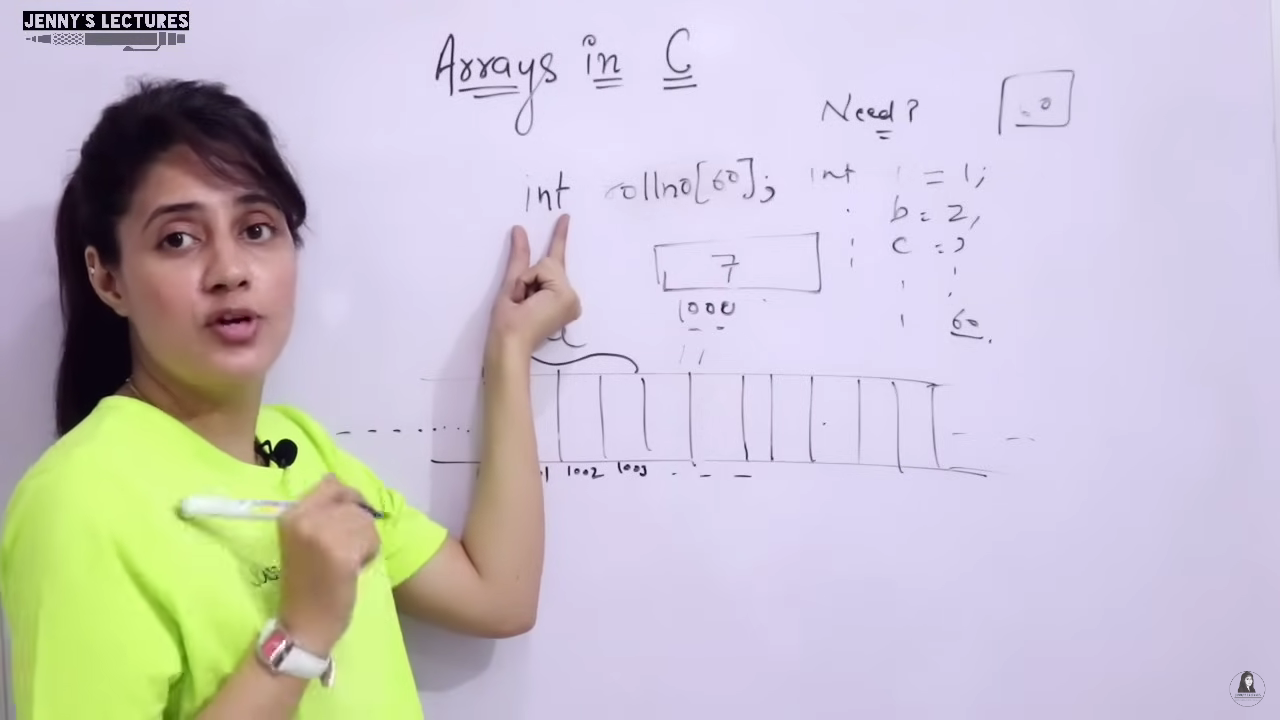 JENNY'S LECTURES
Arrays in C
Need?
int rollno[60]; int = 1;
b = 2,
7
c =
1000
60
1002 1003